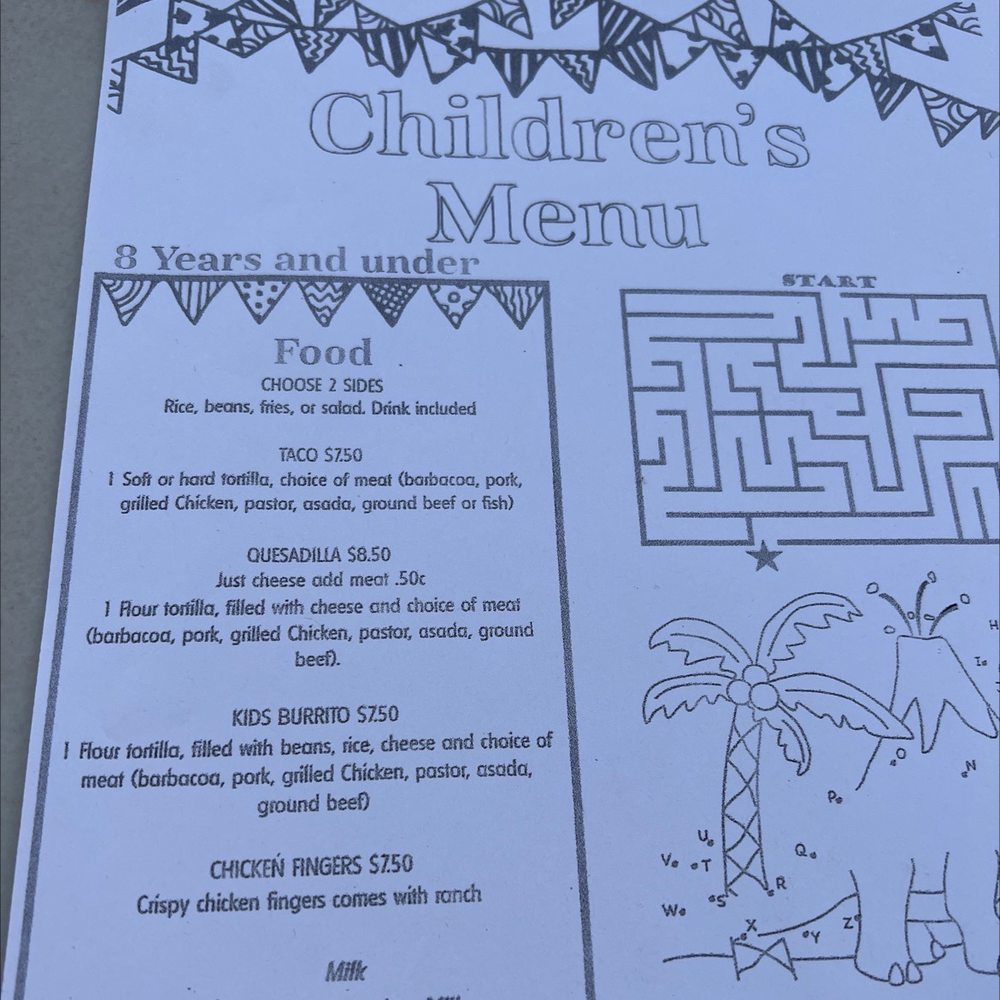 Children's
Menu
8 Years and under
Food
CHOOSE 2 SIDES
Rice, beans, fries, or salad. Drink included
TACO $7.50
1 Soft or hard tortilla, choice of meat (barbacoa, pork,
grilled Chicken, pastor, asada, ground beef or fish)
QUESADILLA $8.50
Just cheese add meat .50c
1 Flour tortilla, filled with cheese and choice of meat
(barbacoa, pork, grilled Chicken, pastor, asada, ground
beef).
KIDS BURRITO $7.50
1 Flour tortilla, filled with beans, rice, cheese and choice of
meat (barbacoa, pork, grilled Chicken, pastor, asada,
ground beef)
CHICKEN FINGERS $7.50
Crispy chicken fingers comes with ranch
Milk
START
H
I
O
N
P
U
Q
V
T
R
S
W
X
Y
Z